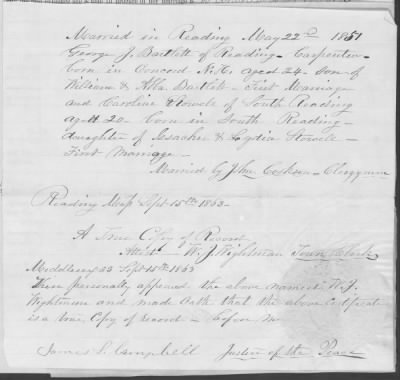 Married in Reading May 22nd 1851
George J. Bartlett of Reading - Carpenter -
born in Concord N.H. aged 24 - son of
William & Abba Bartlett - First Marriage
and Caroline Stowell of South Reading
aged 20 - born in South Reading -
daughter of & Lydia Stowell -
First Marriage -
Married by John - Clergyman
Reading Mass Sept 15th 1863 -
A True Copy of Record
Attest - W. J. Wightman Town Clerk
Middlesex SS Sept 15th 1863
Then personally appeared the above named W. J.
Wightman and made Oath that the above Certificate
is a true Copy of record - before me
James S. Campbell Justice of the Peace